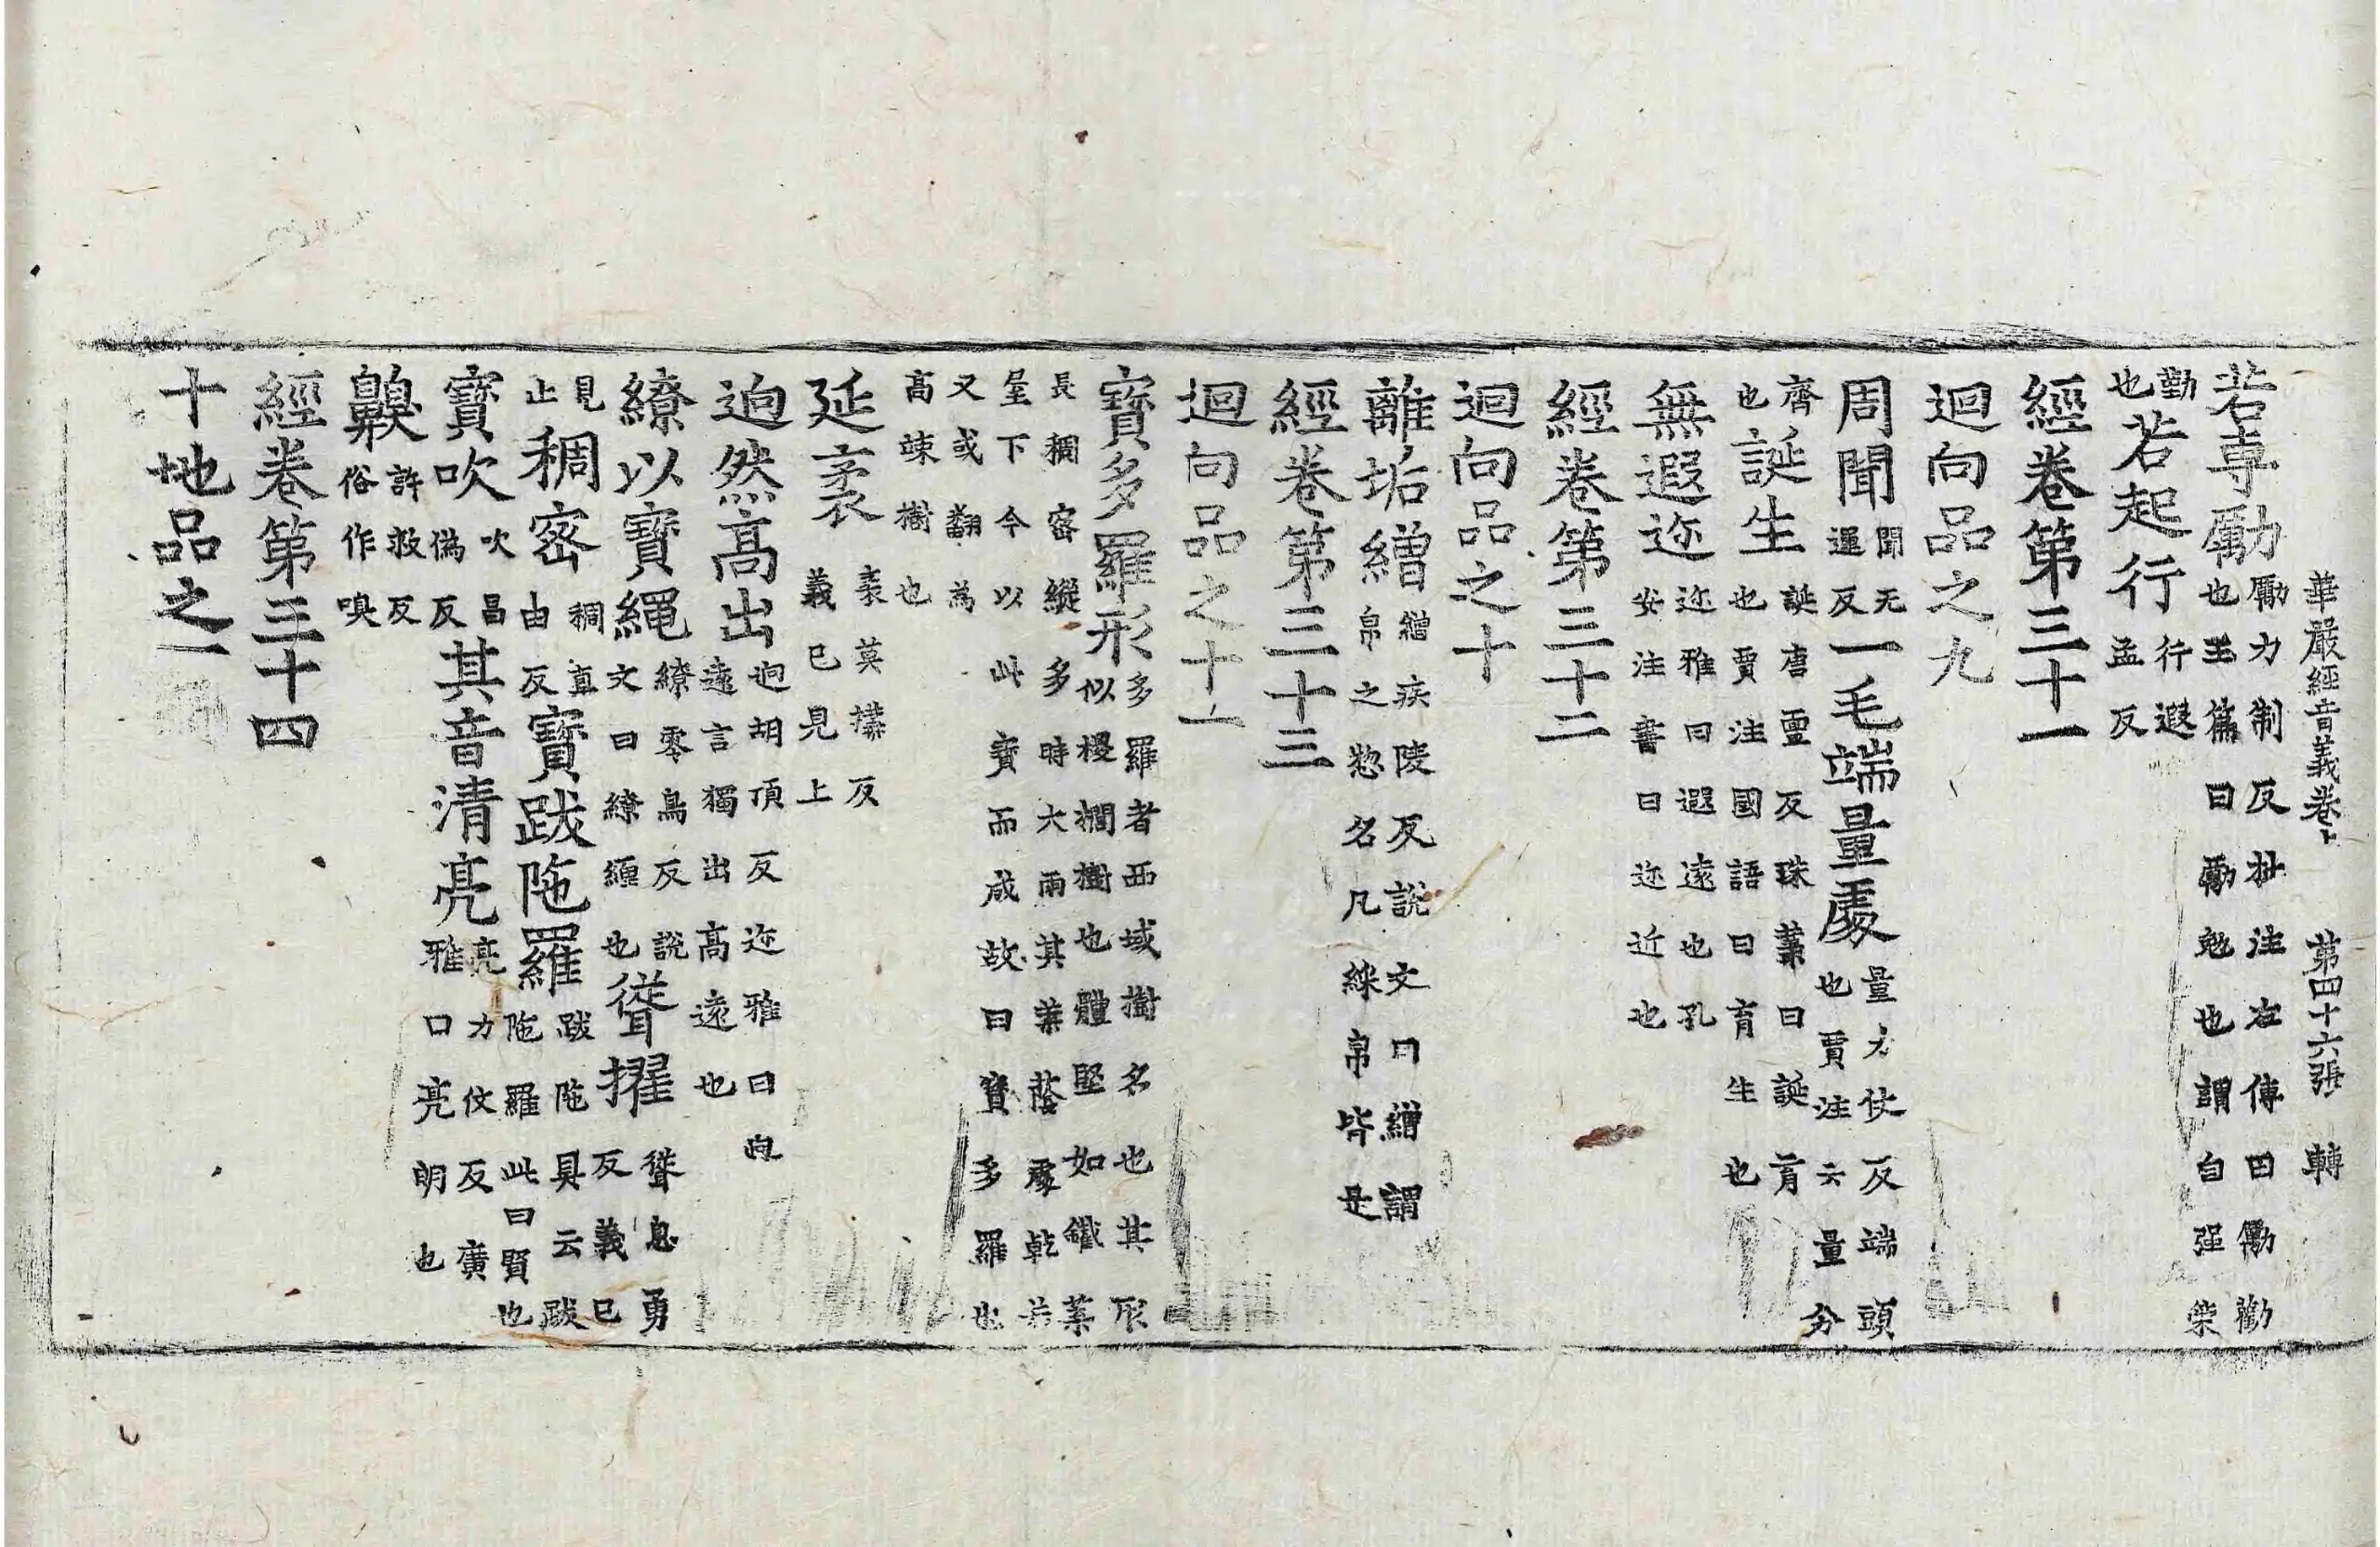 華嚴經音義卷上　第四十六張　轉
若專勵勵力制反杜注左傳曰勵勸也玉篇曰勵勉也謂自强
勤也若起行行遐孟反
經卷第三十一
迴向品之九
周聞聞无運反一毛端量處量力仗反端頭也賈注云量分
齊也誕生誕唐亶反珠叢曰誕育也賈注國語曰育生也
無遐迩迩雅曰遐遠也孔安注書曰迩近也
經卷第三十二
迴向品之十
離垢繒繒疾陵反說文曰繒謂帛之惣名凡綵帛皆是
經卷第三十三
迴向品之十一
寶多羅形多羅者西域樹名也其形似椶櫚樹也體堅如鐵葉
長稠密縱多時大雨其葉蔭處乾若屋下今以此寶而成故曰寶多羅也
又或翻為高竦樹也
延袤袤莫搆反義已見上
逈然高出逈胡頂反迩雅曰逈遠言獨出高遠也
繚以寶繩繚零鳥反說文曰繚纏也聳擢聳息勇反義已
見上稠密稠直由反寶跋陁羅跋陁具云跋陁羅此曰賢也
寶吹吹昌偽反其音清亮亮力仗反廣雅曰亮朗也
齅許救反俗作嗅
經卷第三十四
十地品之一